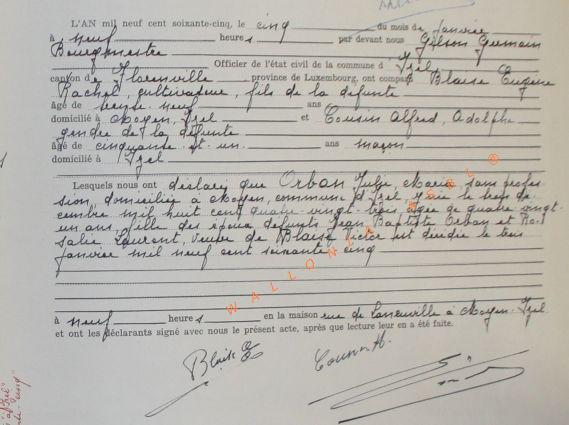 L'AN mil neuf cent soixante-cinq, le cinq du mois de janvier
à neuf heures par devant nous Gilson Germain
Bourgmestre
Officier de l'état civil de la commune d'Izel,
canton de Florenville, province de Luxembourg, ont comparu Blaise Eugène
Rachel, cultivateur, fils de la défunte
âgé de trente-neuf ans
domicilié à Moyen, Izel et Cousin Alfred, Adolphe
gendre de la défunte
âgé de cinquante et un ans maçon
domicilié à Izel
Lesquels nous ont déclaré que Orban Julie, Marie, sans profes-
sion, domiciliée à Moyen, commune d'Izel, y née le de-
cembre mil huit cent quatre-vingt-trois, âgée de quatre-vingt-
un ans, fille des époux défunts Jean Baptiste Orban et Ro-
salie Laurent, veuve de Blaise Victor est décédée le trois
janvier mil neuf cent soixante cinq
WALLONIA ASBL ®
à neuf heures en la maison rue de à Moyen-Izel
et ont les déclarants signé avec nous le présent acte, après que lecture leur en a été faite.
Blaise E
Cousin A.